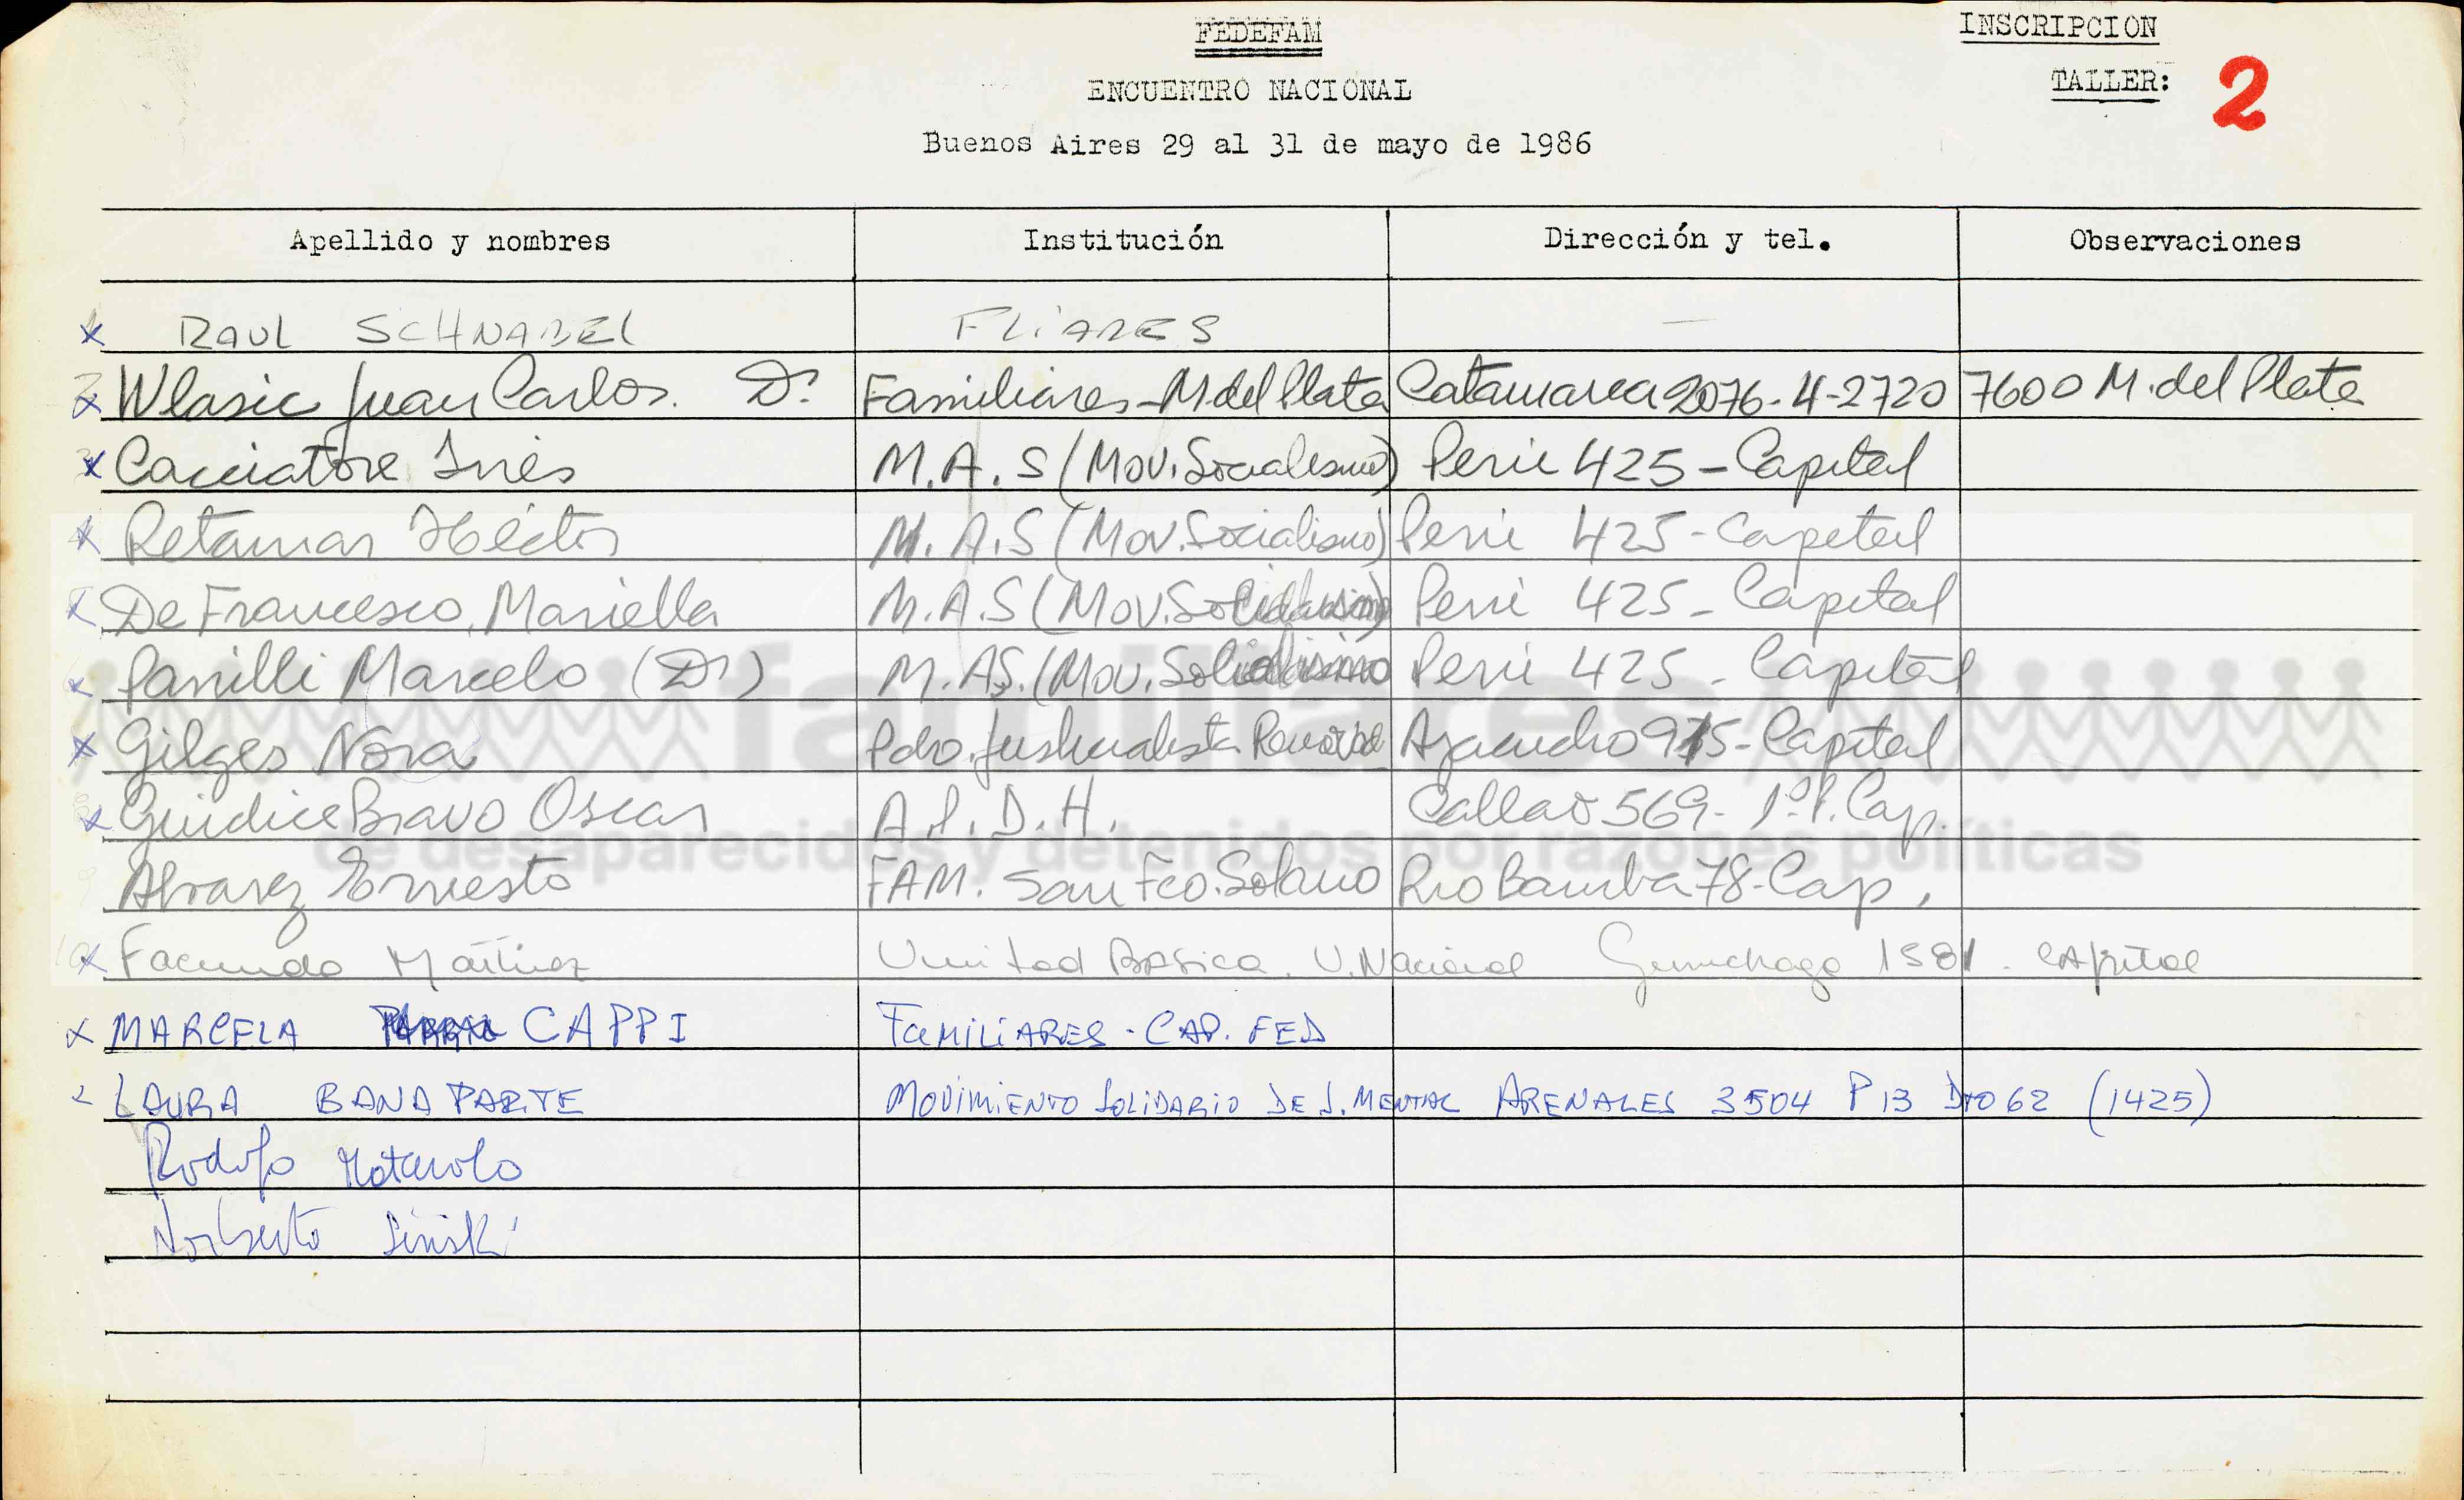 FEDEFAM
INSCRIPCION
ENCUENTRO NACIONAL
TALLER: 2
Buenos Aires 29 al 31 de mayo de 1986
Apellido y nombres Institución Dirección y tel. Observaciones
x RAUL SCHNABEL FLIARES —
2 x Wlasic Juan Carlos. Dr. Familiares - M. del Plata Catamarca 2076 - 4-2720 7600 M. del Plata
3 x Cacciatore Inés M.A.S (Mov. Socialismo) Perú 425 - Capital
x Retamar Héctor M.A.S (Mov. Socialismo) Perú 425 - Capital
x De Francesco, Mariella M.A.S (Mov. Perú 425 - Capital
x Parrilli Marcelo (Dr) M.A.S. (Mov. Perú 425 - Capital
familiares
x Gilges Nora Pdo. Justicialista Ayacucho 915 - Capital
x Guidice Bravo Oscar A.P.D.H. Callao 569 - 1º P. Cap.
de desaparecidos y detenidos por razones políticas
9 Alvarez Ernesto FAM. San Fco. Solano Rio Bamba 78 - Cap.
10 x Facundo Martinez Unidad Basica. U. Nacional Gurruchaga 1581. CApital
x MARCELA CAPPI FAMILIARES - CAP. FED
x LAURA BANAPARTE MOVIMIENTO SOLIDARIO DE S. MENTAL ARENALES 3504 P 13 Dto 62 (1425)
Rodolfo Matarolo
Norberto Liniski